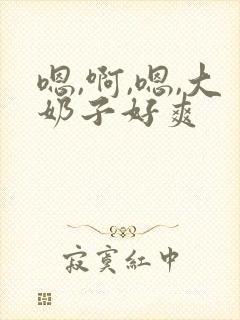 嗯,啊,嗯,大
奶子好爽
寂寞红中